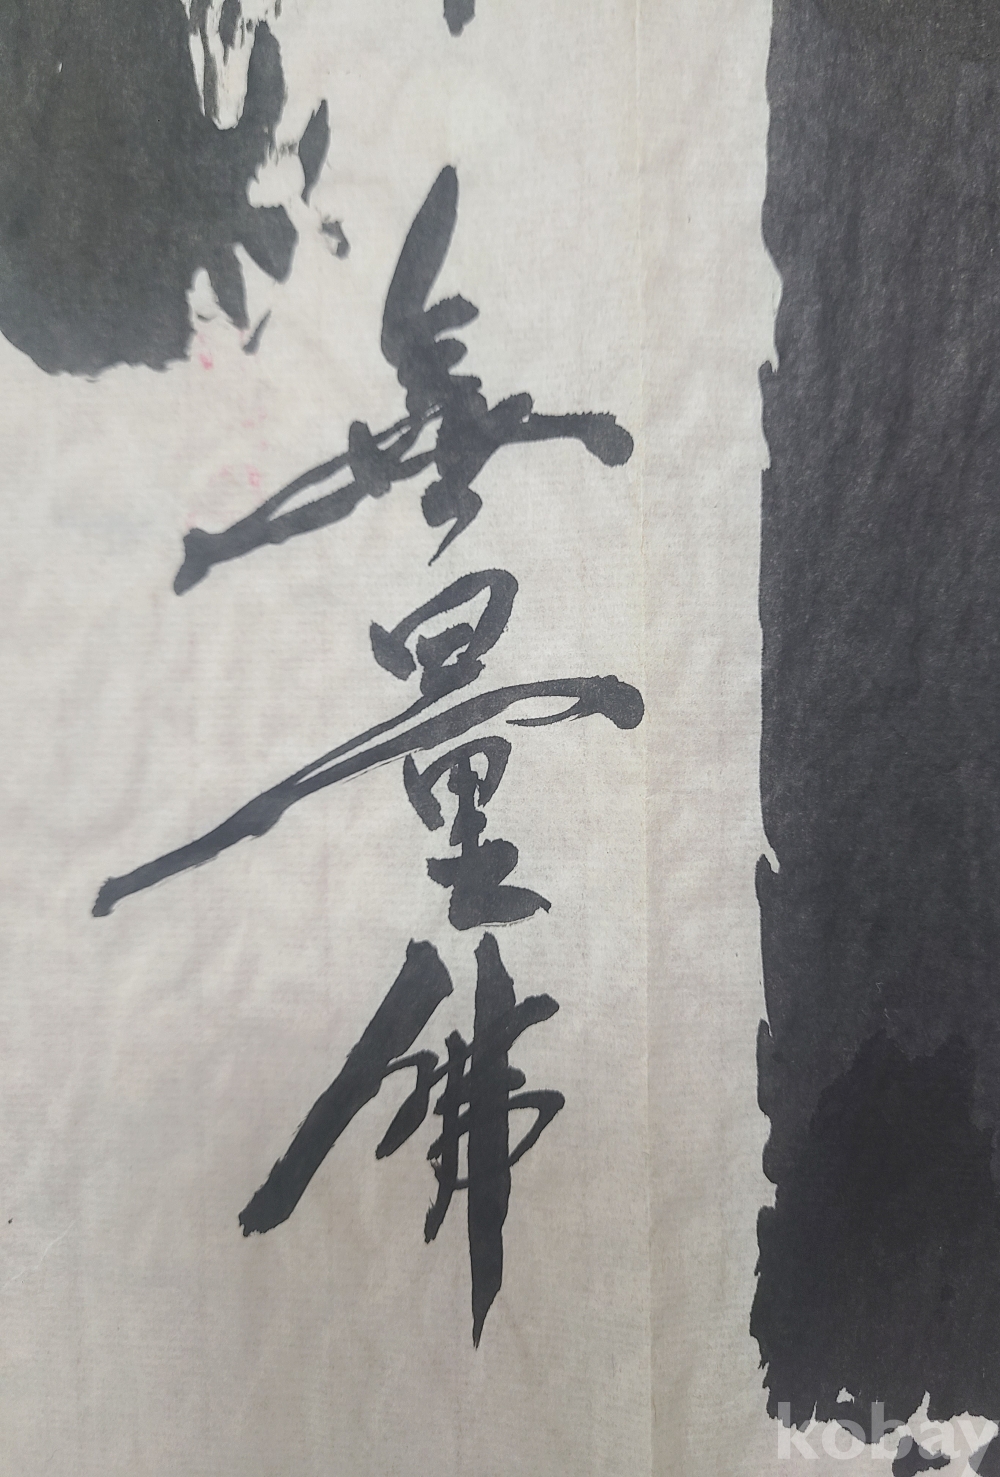 無量佛
kobay